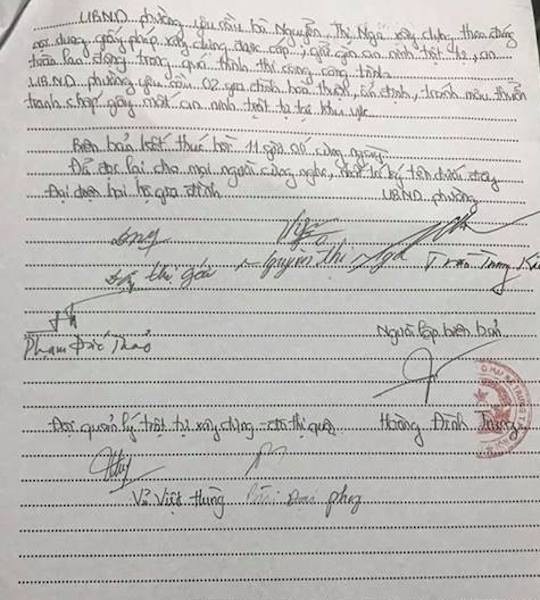 UBND phường yêu cầu bà Nguyễn Thị Ngã xây dựng theo đúng
nội dung giấy phép xây dựng được cấp, giữ gìn an ninh trật tự, an
toàn lao động trong quá trình thi công công trình.
UBND phường yêu cầu 02 gia đình hoà thuận, ổn định, tránh mâu thuẫn
tranh chấp gây mất an ninh trật tự tại khu vực
Biên bản kết thúc hồi 11 giờ cùng ngày
Đã đọc lại cho mọi người cùng nghe, ký tên dưới đây
Đại diện hai hộ gia đình UBND phường
thị Nguyễn Thị Nga Trần Trung
Phạm Đức Thảo
Người lập biên bản
Đội quản lý trật tự xây dựng đô thị quận Hoàng Đình Trung
Vũ Việt Hùng